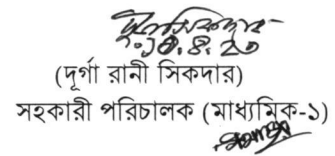 ১০.৪.২৩
(দূর্গা রানী সিকদার)
সহকারী পরিচালক (মাধ্যমিক-১)